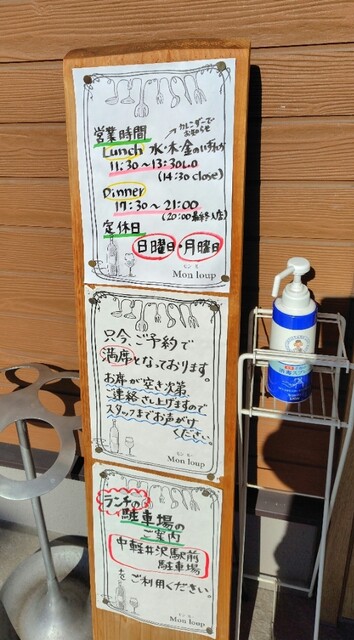 営業時間
カレンダーで
お知らせ
Lunch 水・木・金のいずれか
11:30～13:30L.O
(14:30 close)
Dinner
17:30～21:00
(20:00最終入店)
定休日
日曜日・月曜日
モン・ルー
Mon loup
只今、ご予約で
満席となっております。
お席が空き次第
ご連絡さし上げますので
スタッフまでお声がけ
ください。
モン・ルー
Mon loup
ランチの
駐車場の
ご案内
中軽井沢駅前
駐車場
をご利用ください。
モン・ルー
Mon loup